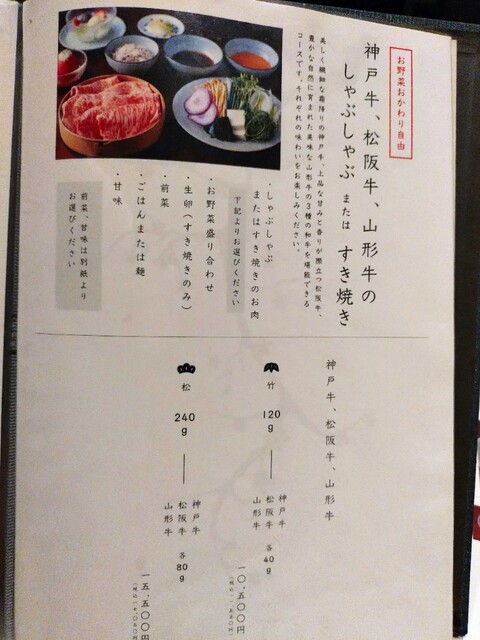 お野菜おかわり自由
神戸牛、松阪牛、山形牛の
しゃぶしゃぶ または すき焼き
美しく繊細な霜降りの神戸牛、上品な甘みと香りが際立つ松阪牛、
豊かな自然に育まれた美味な山形牛の3種の和牛を堪能できる
コースです。それぞれの味わいをお楽しみください。
・しゃぶしゃぶ
またはすき焼きのお肉
下記よりお選びください
・お野菜盛り合わせ
・生卵(すき焼きのみ)
・前菜
・ごはんまたは麺
・甘味
前菜、甘味は別紙より
お選びください
神戸牛、松阪牛、山形牛
竹 120g
神戸牛
松阪牛 各40g
山形牛
一〇、五〇〇円
(税込一一、五五〇円)
松 240g
神戸牛
松阪牛 各80g
山形牛
一五、五〇〇円
(税込一七、〇五〇円)